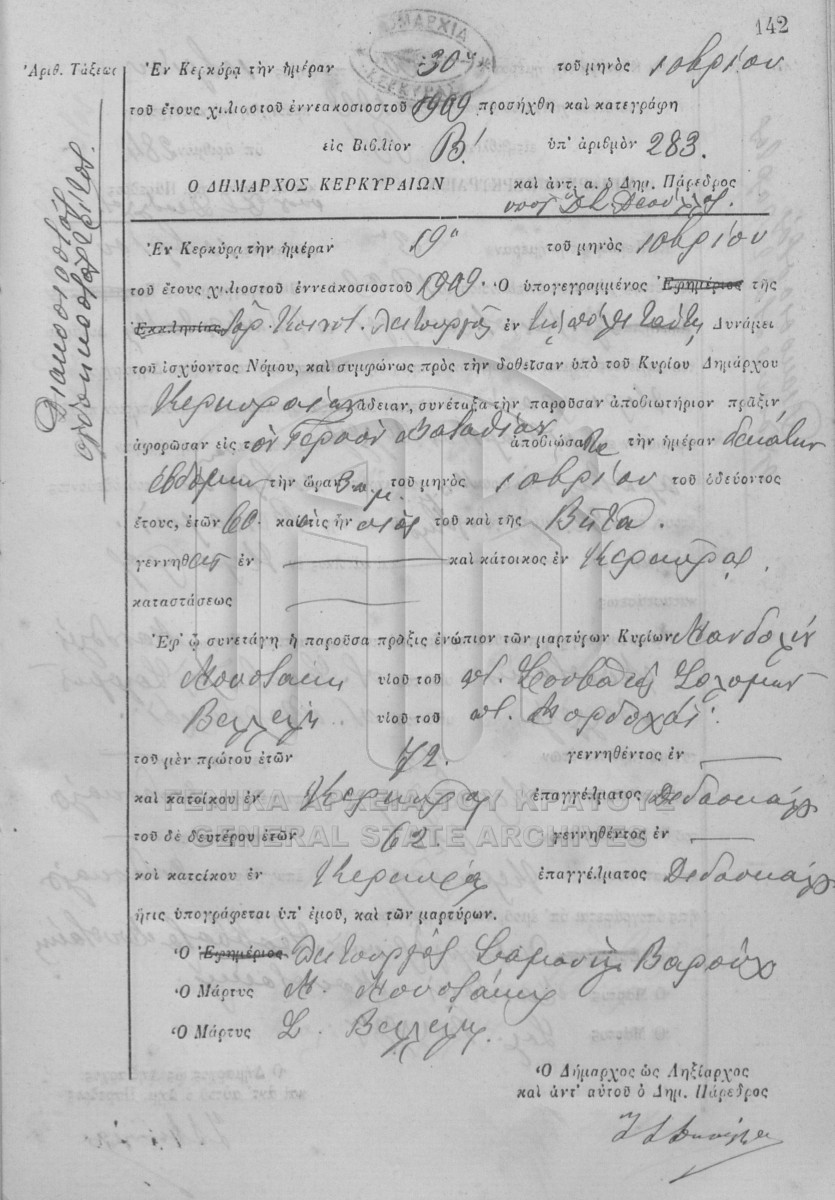 142
ΔΗΜΑΡΧΙΑ ΚΕΡΚΥΡΑΣ
Ἀριθ. Τάξεως
Ἐν Κερκύρᾳ τὴν ἡμέραν 30ην τοῦ μηνὸς 10βρίου
τοῦ ἔτους χιλιοστοῦ ἐννεακοσιοστοῦ 1909 προσήχθη καὶ κατεγράφη
εἰς Βιβλίον Β! ὑπ' ἀριθμὸν 283.
Ο ΔΗΜΑΡΧΟΣ ΚΕΡΚΥΡΑΙΩΝ καὶ ἀντ. α. ὁ Δημ. Πάρεδρος
Ἐν Κερκύρᾳ τὴν ἡμέραν 19η τοῦ μηνὸς 10βρίου
τοῦ ἔτους χιλιοστοῦ ἐννεακοσιοστοῦ 1909. Ὁ ὑπογεγραμμένος Ἐφημέριος τῆς
Ἐκκλησίας Ἰσρ. Κοινότ. Λειτουργὸς ἐν τῇ πόλει ταύτῃ Δυνάμει
τοῦ ἰσχύοντος Νόμου, καὶ συμφώνως πρὸς τὴν δοθεῖσαν ὑπὸ τοῦ Κυρίου Δημάρχου
Κερκυραίων ἄδειαν, συνέταξα τὴν παροῦσαν ἀποβιωτήριον πρᾶξιν
ἀφορῶσαν εἰς τὸν ἀποβιώσαντα τὴν ἡμέραν δεκάτην
ἑβδόμην τὴν ὥραν 3 π.μ. τοῦ μηνὸς 10βρίου τοῦ ὁδεύοντος
ἔτους, ἐτῶν 60. καὶ ὅστις ἦν υἱὸς τοῦ καὶ τῆς Βήτα.
γεννηθεὶς ἐν καὶ κάτοικος ἐν Κερκύρᾳ.
καταστάσεως
Ἐφ' ᾧ συνετάγη ἡ παροῦσα πρᾶξις ἐνώπιον τῶν μαρτύρων Κυρίων Μανδολὴν
Μουστάκη υἱοῦ τοῦ ποτ. Σολομὼν
Βελλέλη υἱοῦ τοῦ ποτ. Μορδοχάϊ.
τοῦ μὲν πρώτου ἐτῶν 72. γεννηθέντος ἐν
καὶ κατοίκου ἐν Κερκύρᾳ ἐπαγγέλματος Διδάσκαλος
τοῦ δὲ δευτέρου ἐτῶν 62. γεννηθέντος ἐν
καὶ κατοίκου ἐν Κερκύρᾳ ἐπαγγέλματος Διδάσκαλος
ἥτις ὑπογράφεται ὑπ' ἐμοῦ, καὶ τῶν μαρτύρων.
Ὁ Ἐφημέριος Λειτουργὸς Σαμουὴλ Βαροὺχ
Ὁ Μάρτυς Μ. Μουστάκης
Ὁ Μάρτυς Σ. Βελλέλης
Ὁ Δήμαρχος ὡς Ληξίαρχος
καὶ ἀντ' αὐτοῦ ὁ Δημ. Πάρεδρος
ΓΕΝΙΚΑ ΑΡΧΕΙΑ ΤΟΥ ΚΡΑΤΟΥΣ
GENERAL STATE ARCHIVES